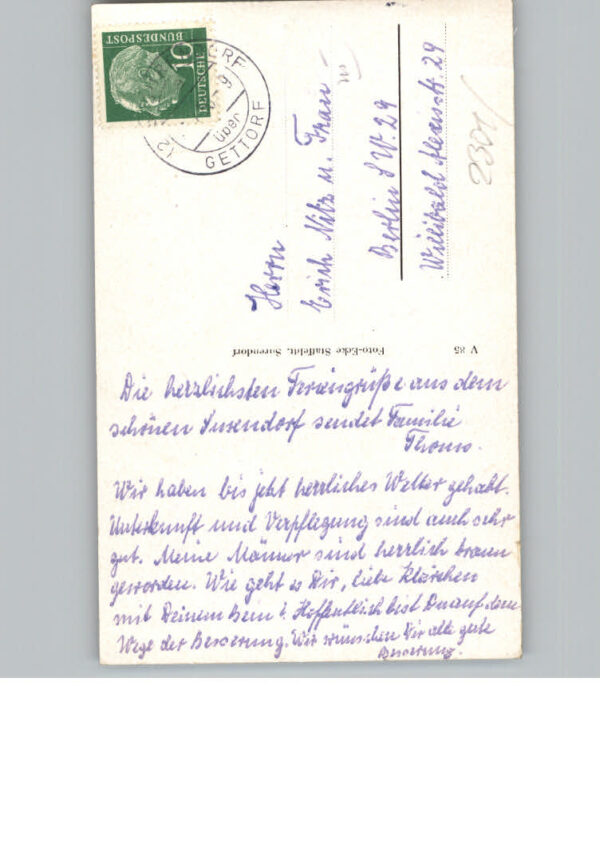 DEUTSCHE
BUNDESPOST
10
über
GETTORF
Herrn
Erich Nitz u. Frau
Berlin SW. 29
Willibald Alexisstr. 29
V 85
Foto-Ecke Staffeldt, Surendorf
Die herzlichsten Feriengrüße aus dem
schönen Surendorf sendet Familie
Thoms.
Wir haben bis jetzt herrliches Wetter gehabt.
Unterkunft und Verpflegung sind auch sehr
gut. Meine Männer sind herrlich braun
geworden. Wie geht es Dir, liebe Klärchen
mit Deinem Bein? Hoffentlich bist Du auf dem
Wege der Besserung. Wir wünschen Dir alle gute
Besserung.